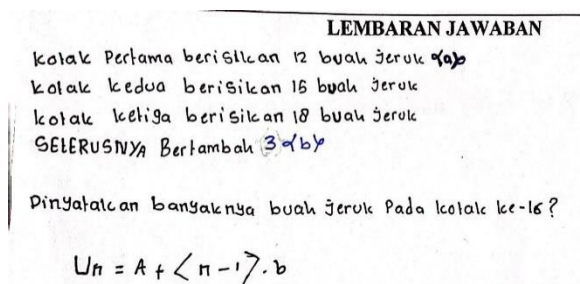 LEMBARAN JAWABAN
kotak Pertama berisikan 12 buah Jeruk <a>
kotak kedua berisikan 15 buah Jeruk
kotak ketiga berisikan 18 buah Jeruk
SETERUSNYA Bertambah 3 <b>
Dinyatakan banyaknya buah Jeruk Pada kotak ke-16?
Un = A + <n-1>.b